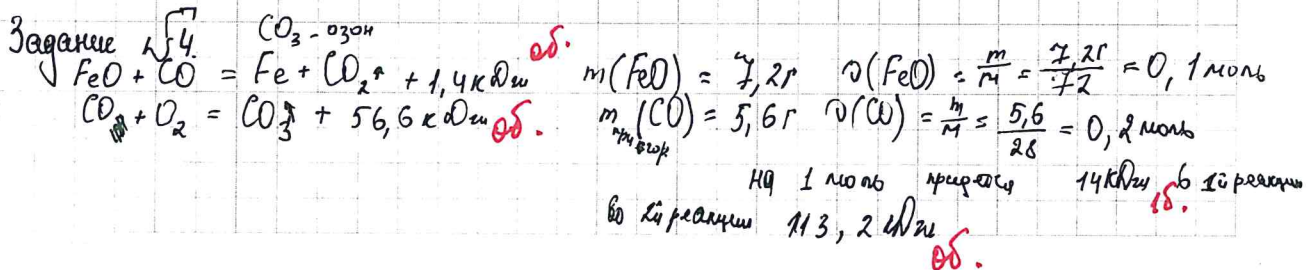 Задание №4. CO₃ - озон
FeO + CO = Fe + CO₂↑ + 1,4 кДж 0б. m(FeO) = 7,2г ν(FeO) = m/M = 7,2г/72 = 0,1 моль
CO + O₂ = CO₃↑ + 56,6 кДж 0б. m при сгор. (CO) = 5,6г ν(CO) = m/M = 5,6/28 = 0,2 моль
на 1 моль придется 14 кДж в 1й реакции 1б.
во 2й реакции 113,2 кДж 0б.